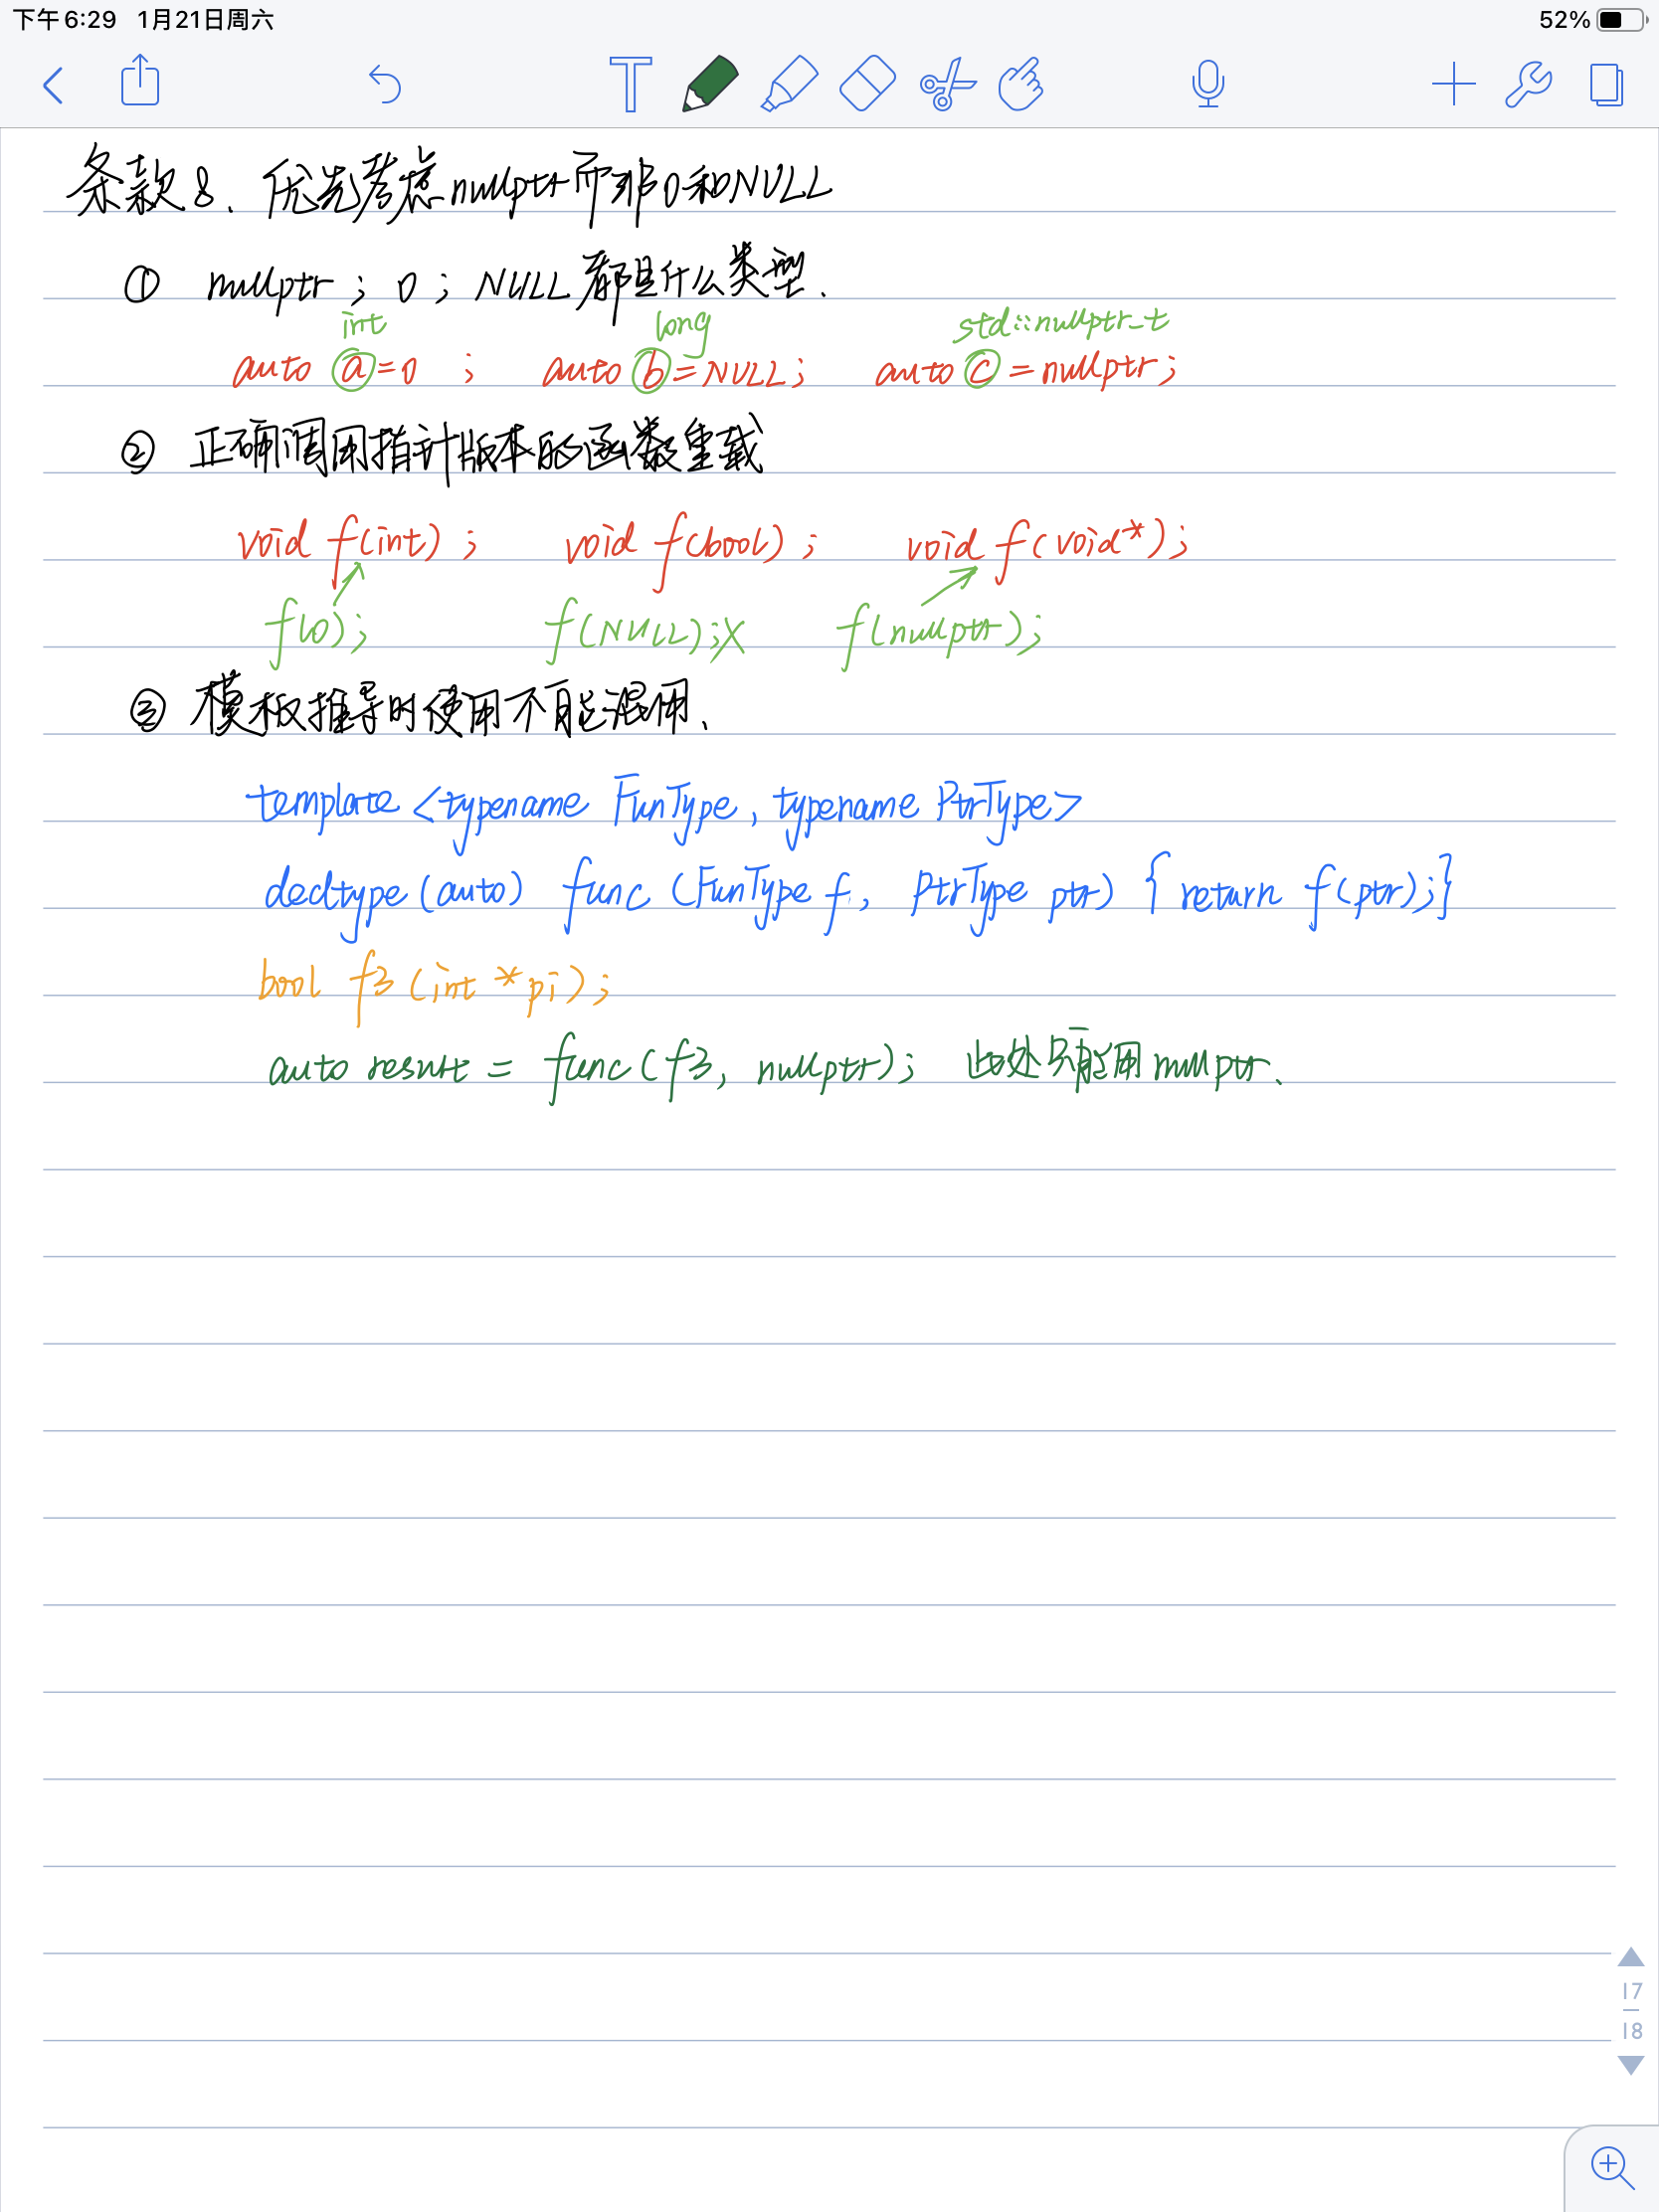 下午6:29 1月21日周六 52%
条款8、优先考虑nullptr而非0和NULL
① nullptr ; 0 ; NULL 都是什么类型.
int long std::nullptr_t
auto a=0 ; auto b=NULL; auto c=nullptr;
② 正确调用指针版本的函数重载
void f(int) ; void f(bool) ; void f(void*);
f(0); f(NULL);X f(nullptr);
③ 模板推导时使用不能混用、
template <typename FunType, typename PtrType>
decltype(auto) func (FunType f, PtrType ptr) { return f(ptr);}
bool f3 (int *pi);
auto result = func(f3, nullptr); 此处只能用nullptr、
17
18